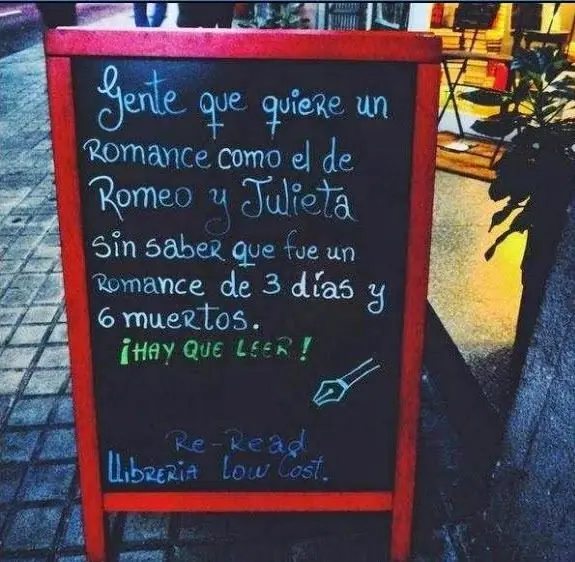 Gente que quiere un
Romance como el de
Romeo y Julieta
sin saber que fue un
Romance de 3 días y
6 muertos.
¡HAY QUE LEER!
Re-Read
Llibreria Low Cost.